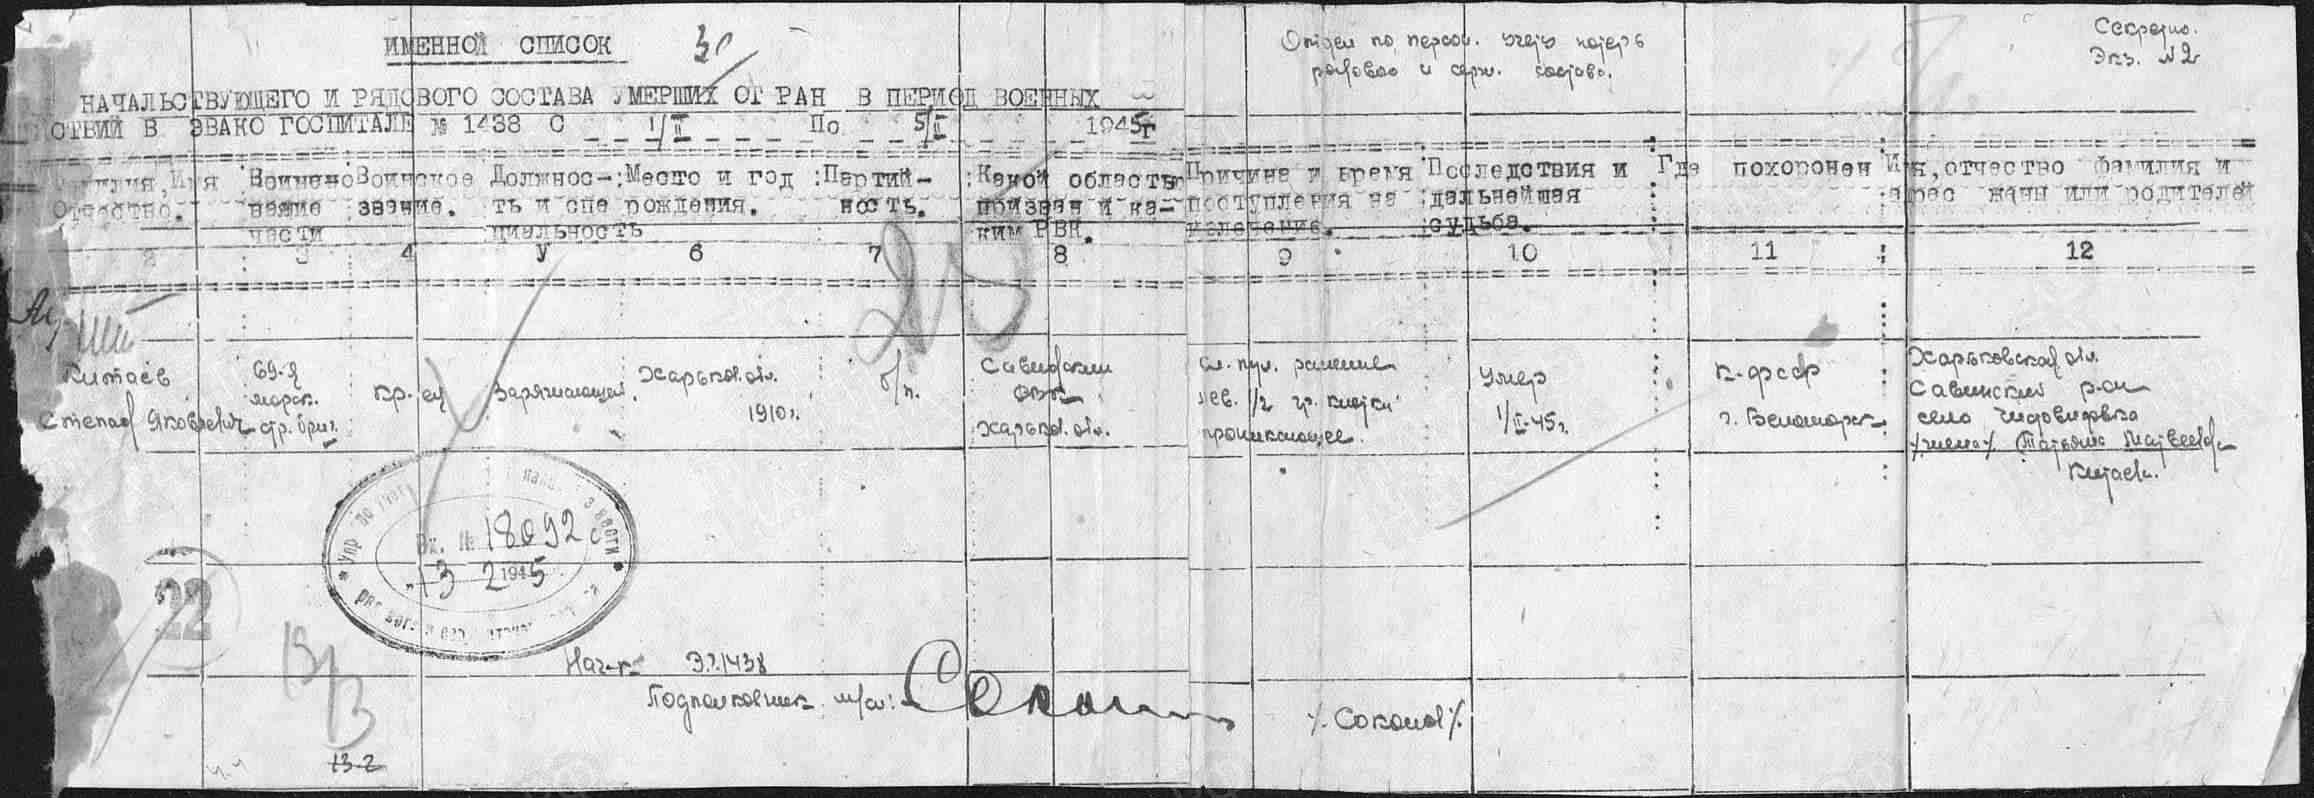 Секретно.
Экз. №2
Отдел по персон. учету потерь
рядового и серж. состава.
ИМЕННОЙ СПИСОК
30
НАЧАЛЬСТВУЮЩЕГО И РЯДОВОГО СОСТАВА УМЕРШИХ ОТ РАН В ПЕРИОД ВОЕННЫХ
СТВИЙ В ЭВАКО ГОСПИТАЛЕ № 1438 С 1/II По 5/II 1945г
Имя Воинско Воинское Должнос- Место и год Партий- Какой областью Причина и время Последствия и Где похоронен Имя, отчество фамилия и
Отчество. вание звание. ть и спе рождения. ность. призван и ка- поступления на дальнейшая адрес жены или родителей
части циальность ким РВК. излечение. судьба.
2 3 4 У 6 7 8 9 10 11 12
25
Китаев 69-я Харьков. обл. б/п. Савинский сл. пул. ранение Умер К-ФССР Харьковская обл.
морск. кр-ец Заряжающий 1910 г. РВК лев. 1/2 гр. клетки 1/II-45г. г. Беломорск Савинский р-он
Степан Яковлевич стр. бриг. Харьков. обл. проникающее. село
/жена/ Татьяна Матвеевна
Китаева.
Упр по учет
Вх. № 18092 с
"13 2 1945
22
13/3
13-2
Нач-к Э.Г. 1438
Подполковник м/сл:
/. Соколов /.